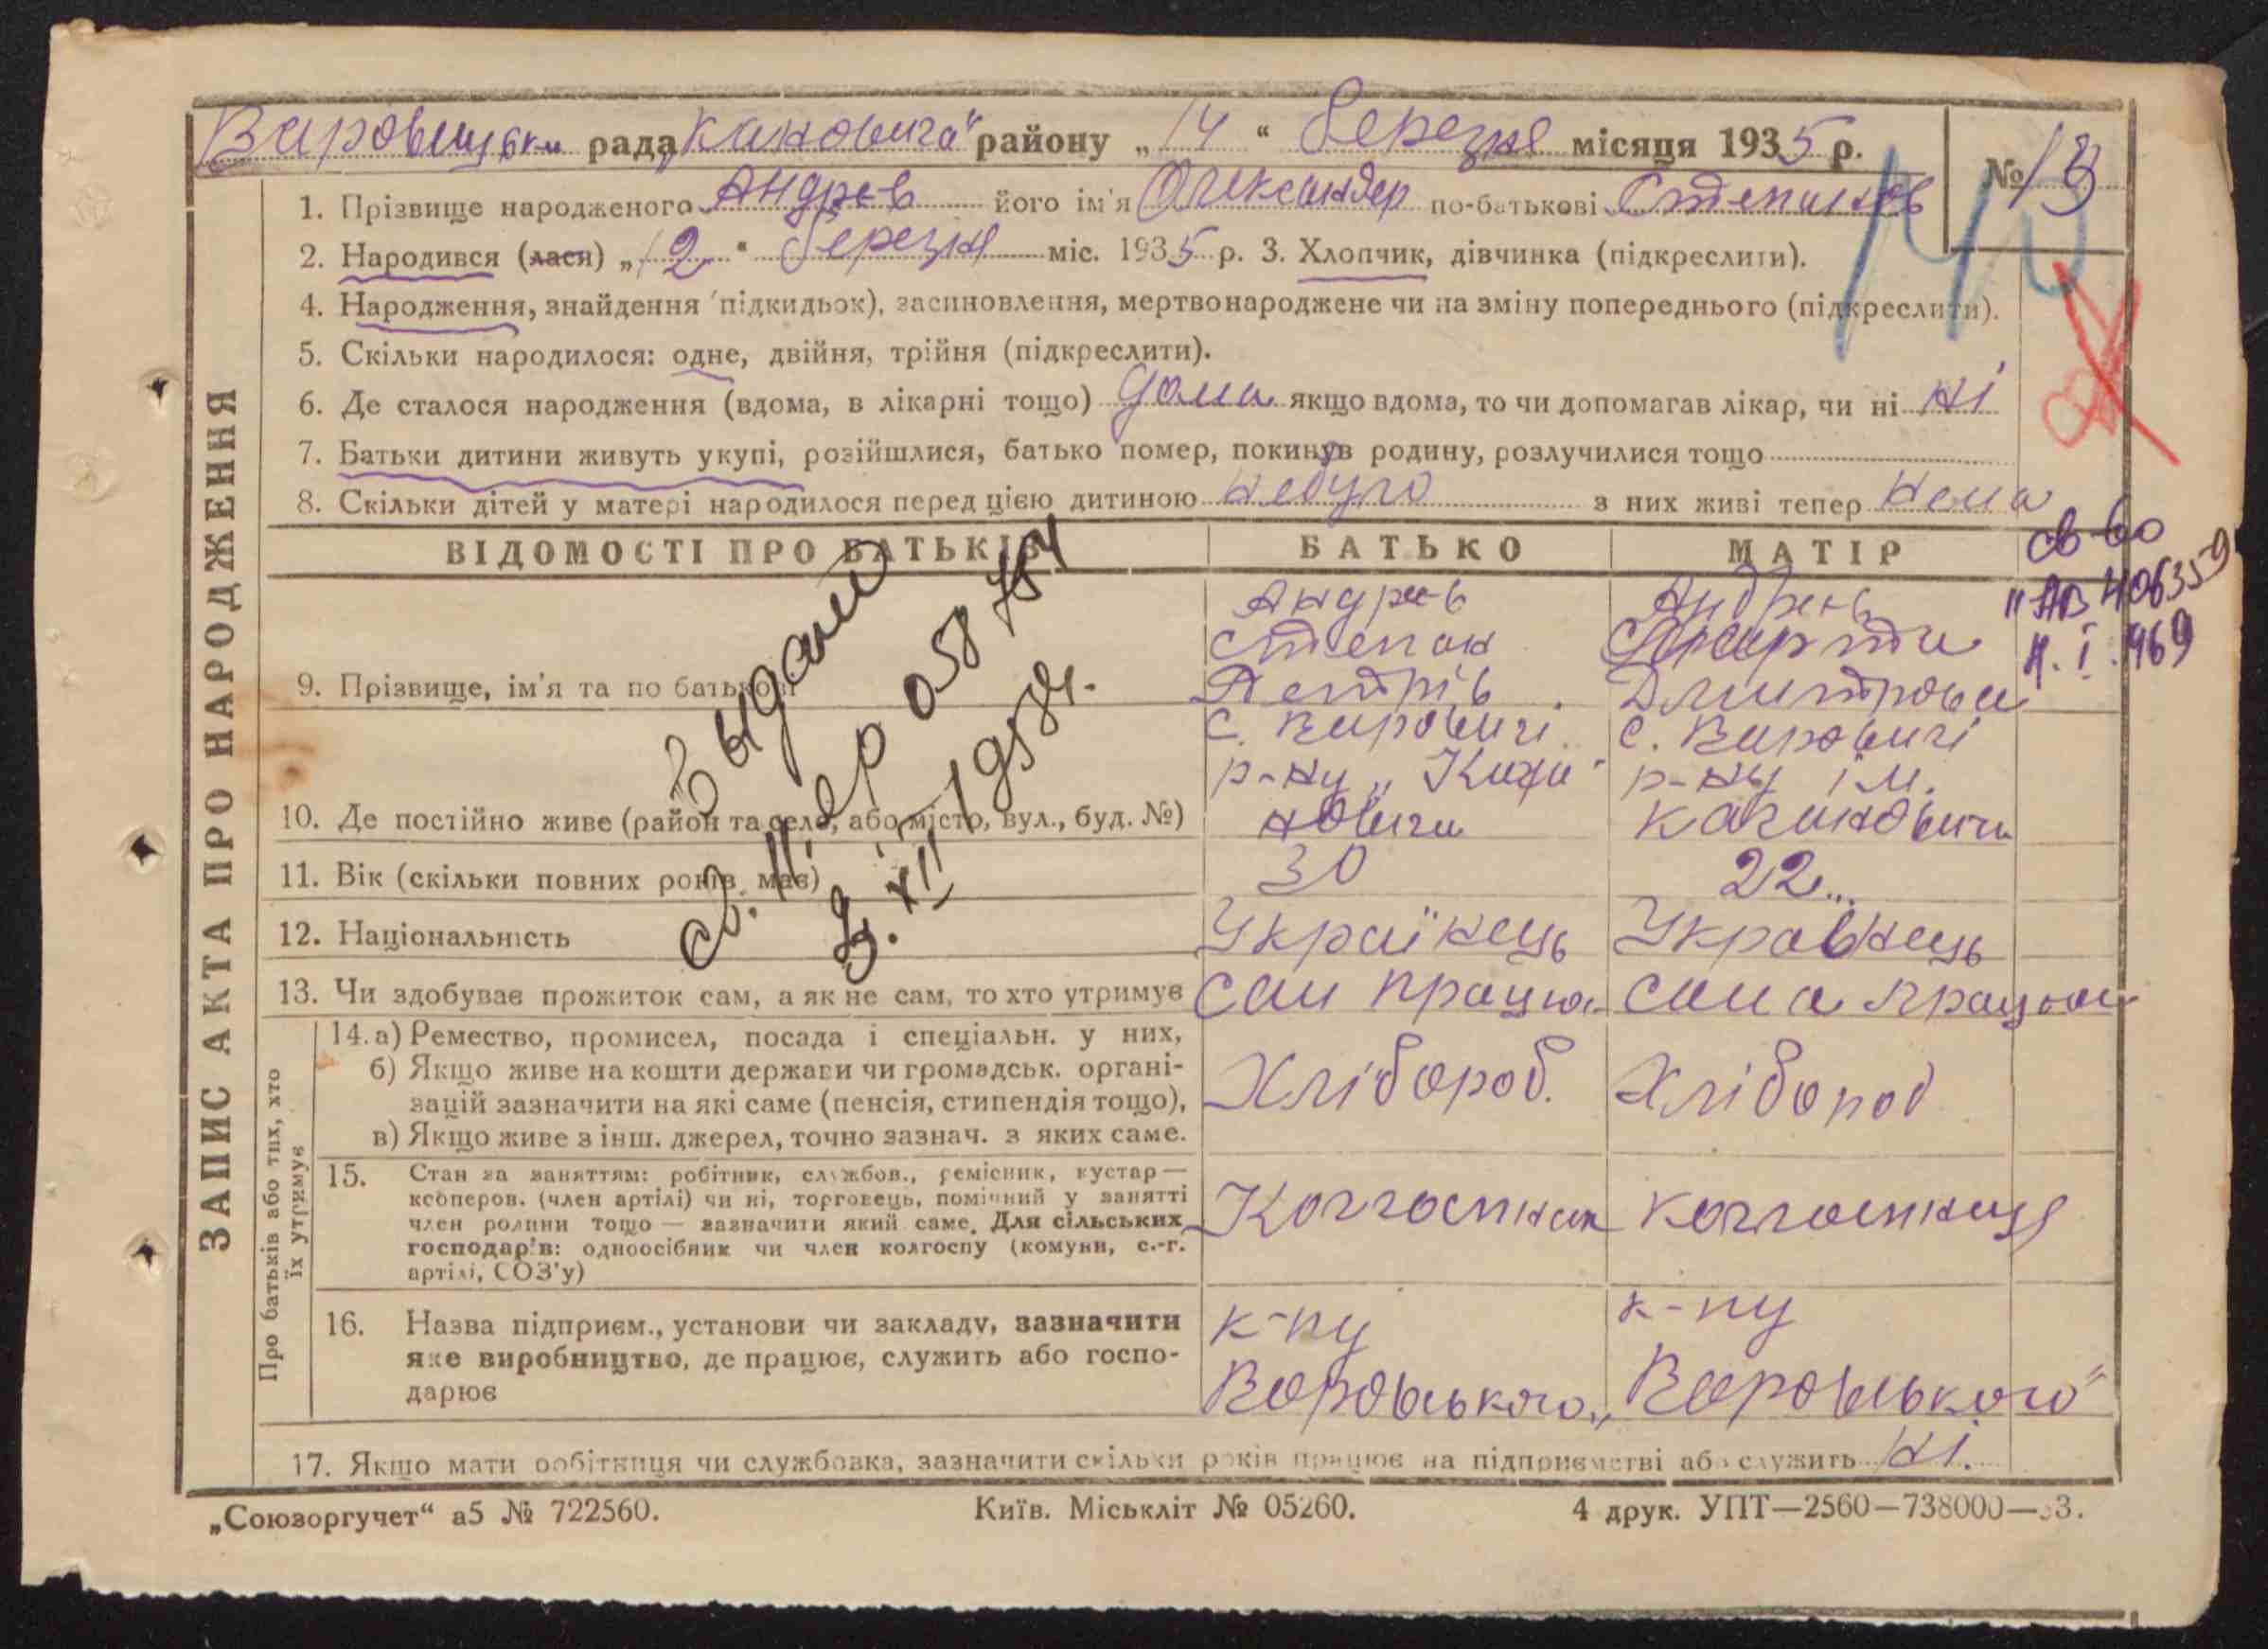 рада „Кановича" району „14" березня місяця 1935 р.
№ 13
1. Прізвище народженого Андрєєв його ім'я Олександер по-батькові Степанов
2. Народився (лася) „12" березня міс. 1935 р. 3. Хлопчик, дівчинка (підкреслити).
4. Народження, знайдення (підкидьок), засиновлення, мертвонароджене чи на зміну попереднього (підкреслити).
5. Скільки народилося: одне, двійня, трійня (підкреслити).
6. Де сталося народження (вдома, в лікарні тощо) дома якщо вдома, то чи допомагав лікар, чи ні ні
7. Батьки дитини живуть укупі, розійшлися, батько помер, покинув родину, розлучилися тощо
8. Скільки дітей у матері народилося перед цією дитиною небуло з них живі тепер нема
ВІДОМОСТІ ПРО БАТЬКІВ БАТЬКО МАТІР
св-во
"АВ 406359
1969
9. Прізвище, ім'я та по батькові
Степан
Петрів Дмитрова
с. Вировичі с. Вировичі
р-ну р-ну ім.
Кагановича
10. Де постійно живе (район та село, або місто, вул., буд. №)
11. Вік (скільки повних років має) 30 22
12. Національність Українець Українець
13. Чи здобуває прожиток сам, а як не сам, то хто утримує сам працює сама працює
14. а) Ремество, промисел, посада і спеціальн. у них,
б) Якщо живе на кошти держави чи громадськ. органі-
зацій зазначити на які саме (пенсія, стипендія тощо),
в) Якщо живе з інш. джерел, точно зазнач. з яких саме.
Хлібороб. Хлібороб
15. Стан за заняттям: робітник, службов., ремісник, кустар —
кооперов. (член артілі) чи ні, торговець, помічний у занятті
член родини тощо — зазначити який саме. Для сільських
господар'в: одноосібник чи член колгоспу (комуни, с.-г.
артілі, СОЗ'у)
Колгоспник колгоспниця
16. Назва підприєм., установи чи закладу, зазначити
яке виробництво, де працює, служить або госпо-
дарює
к-пу к-пу
Воровського „Воровського"
17. Якщо мати робітниця чи службовка, зазначити скільки років працює на підприємстві або служить ні.
Выдано
058
ЗАПИС АКТА ПРО НАРОДЖЕННЯ
Про батьків або тих, хто
їх утримує
„Союзоргучет" а5 № 722560. Київ. Міськліт № 05260. 4 друк. УПТ—2560—738000—33.